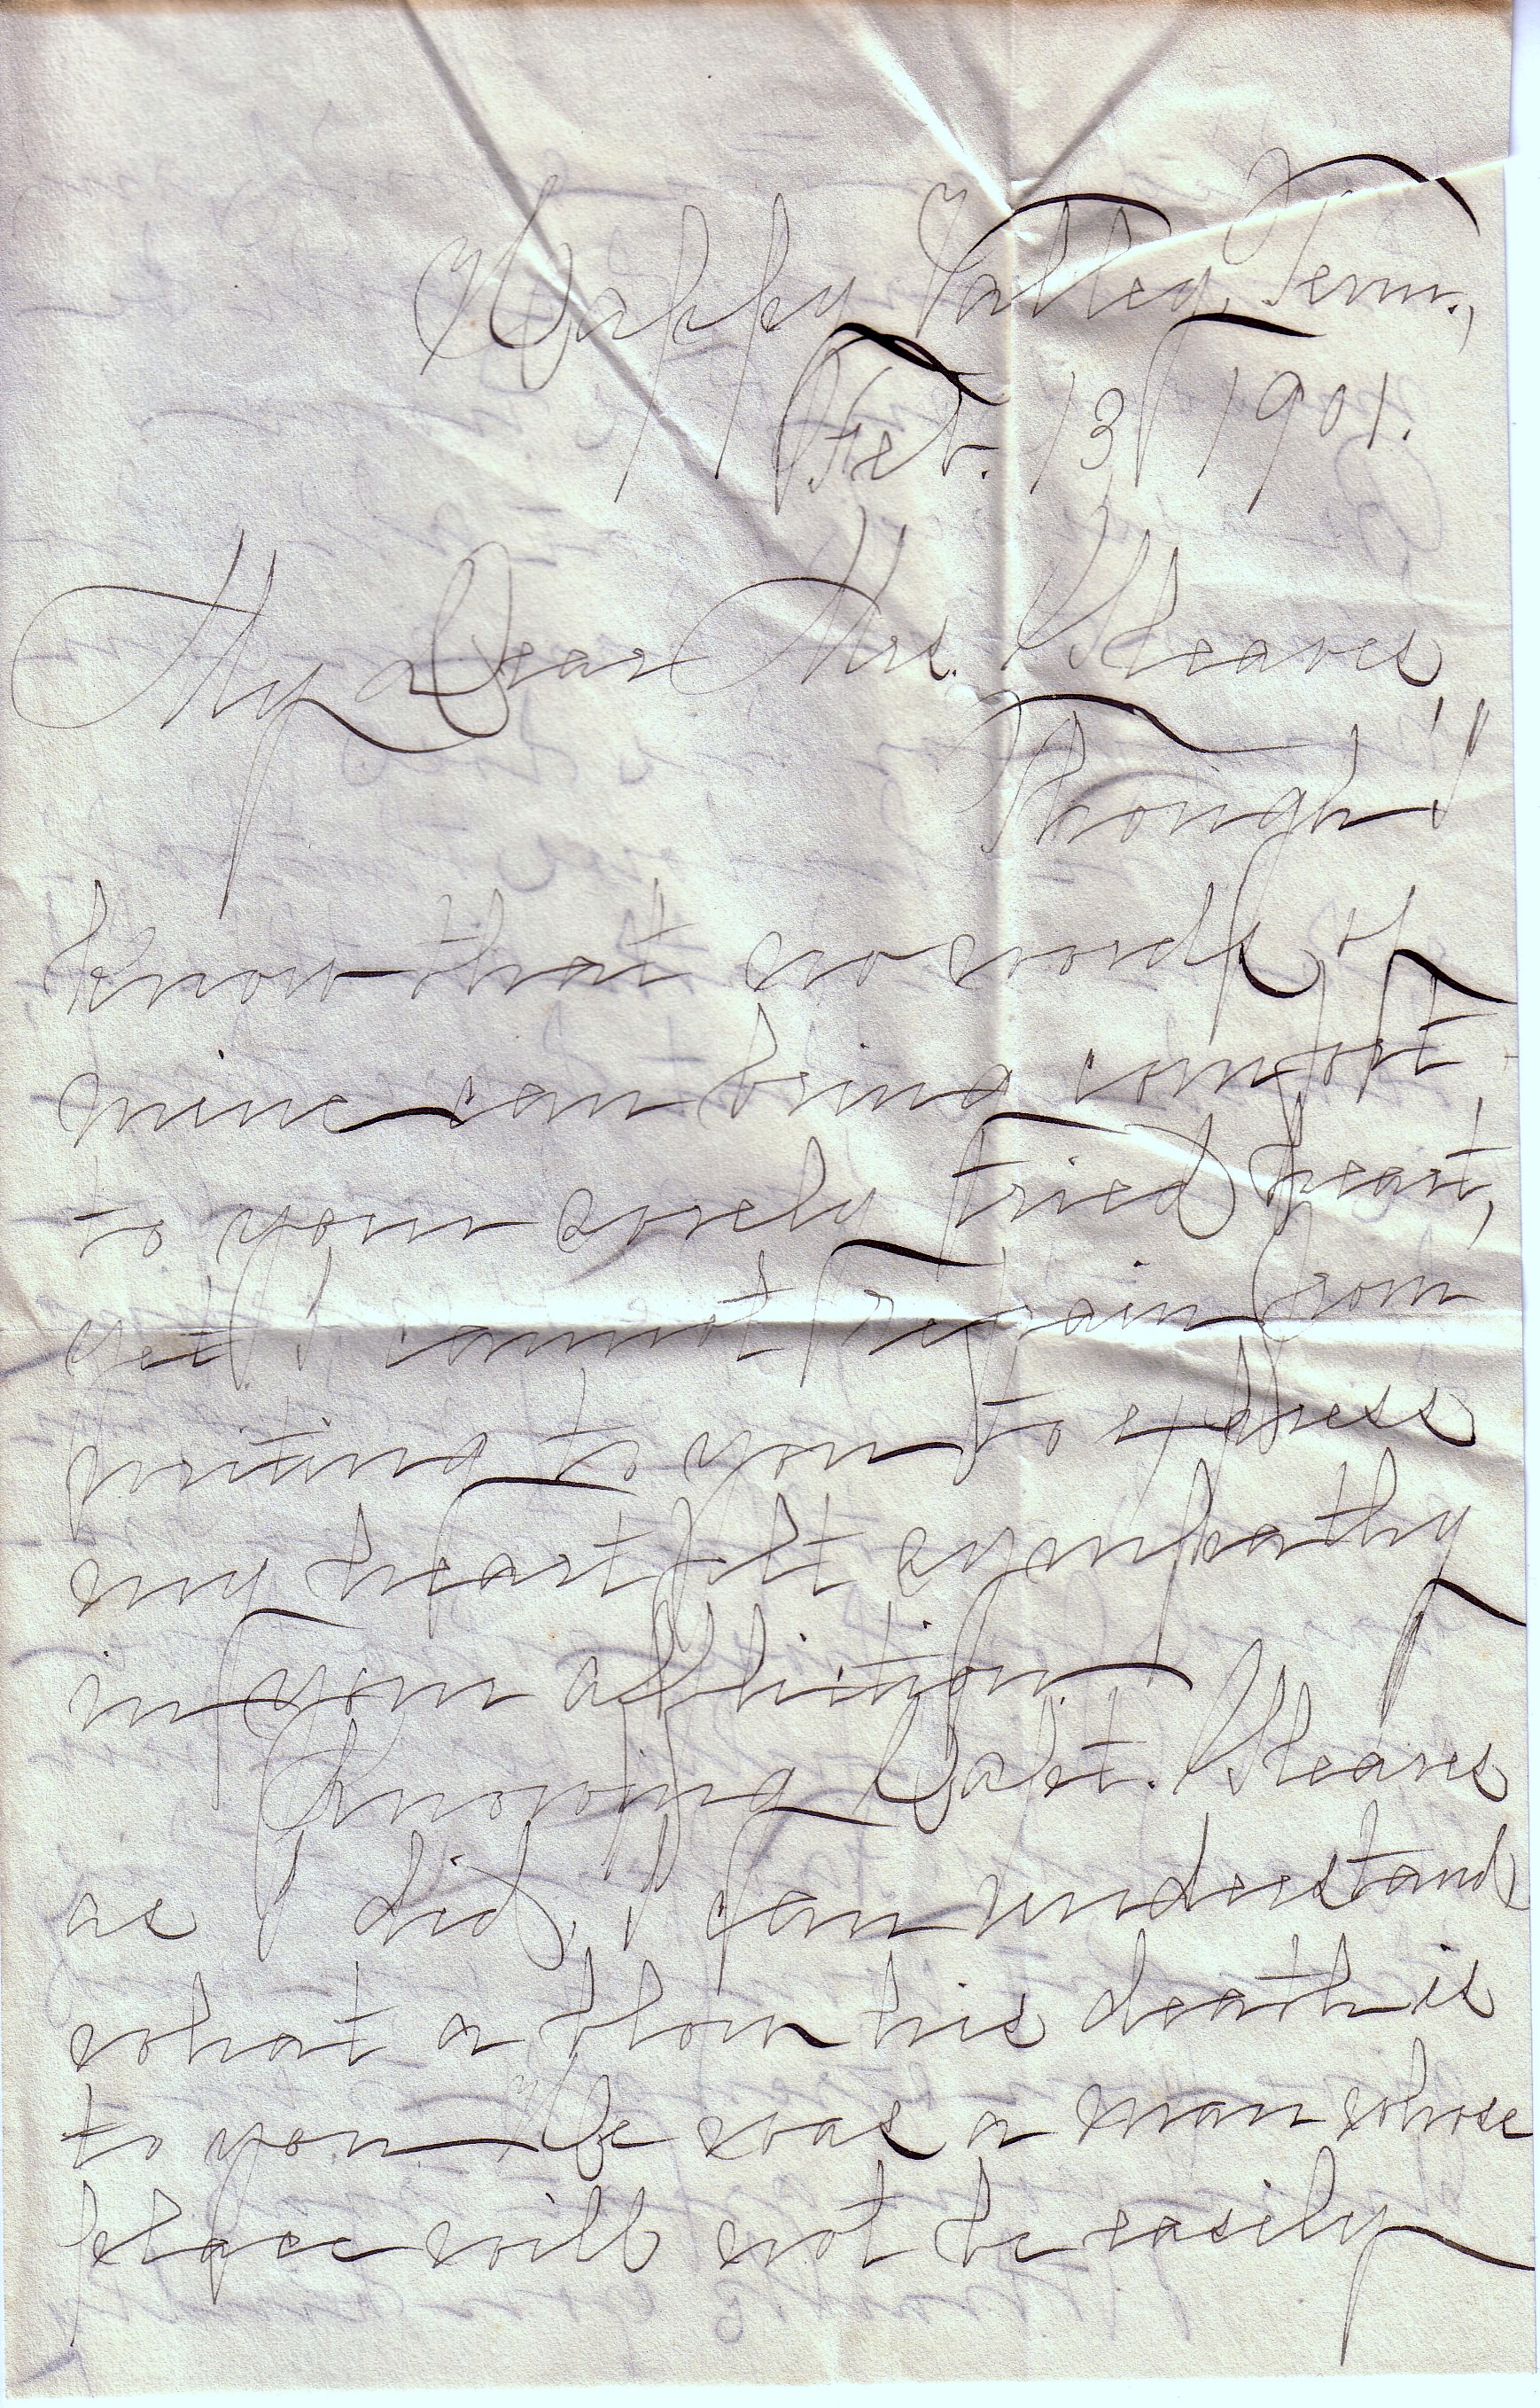 Happy Valley, Tenn.,
Feb. 13, 1901.
My Dear Mrs. Steaves,
Though I
know that no words of
mine can bring comfort,
to your sorely tried heart,
yet I cannot refrain from
writing to you to express
my heartfelt sympathy
in your affliction.
Knowing Capt. Steaves
as I did, I can understand
what a blow his death is
to you. He was a man whose
place will not be easily